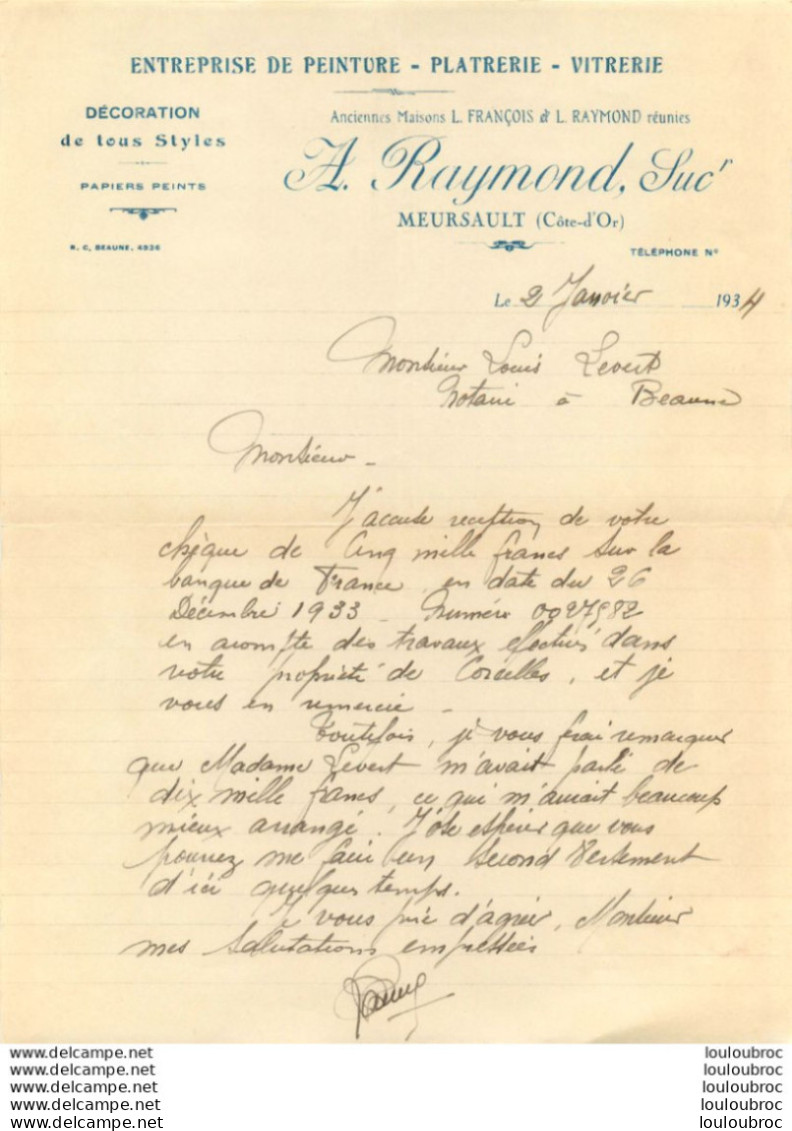 ENTREPRISE DE PEINTURE - PLATRERIE - VITRERIE
DÉCORATION
de tous Styles
PAPIERS PEINTS
R. C. BEAUNE, 4936
Anciennes Maisons L. FRANÇOIS & L. RAYMOND réunies
A. Raymond, Sucr
MEURSAULT (Côte-d'Or)
TÉLÉPHONE No
Le 2 Janvier 1934
Monsieur Louis Levert
Notaire à Beaune
Monsieur -
J'accuse reception de votre
chèque de Cinq mille francs sur la
banque de France, en date du 26
Décembre 1933 - Numéro 0027982
en acompte des travaux efectués dans
votre propriété de Corcelles, et je
vous en remercie -
Toutefois, je vous ferai remarquer
que Madame Levert m'avait parlé de
dix mille francs, ce qui m'aurait beaucoup
mieux arrangé. J'ose espérer que vous
pourrez me faire un second versement
d'ici quelque temps.
Je vous prie d'agréer, Monsieur
mes Salutations empressées
www.delcampe.net
www.delcampe.net
www.delcampe.net
www.delcampe.net
www.delcampe.net
louloubroc
louloubroc
louloubroc
louloubroc
louloubroc